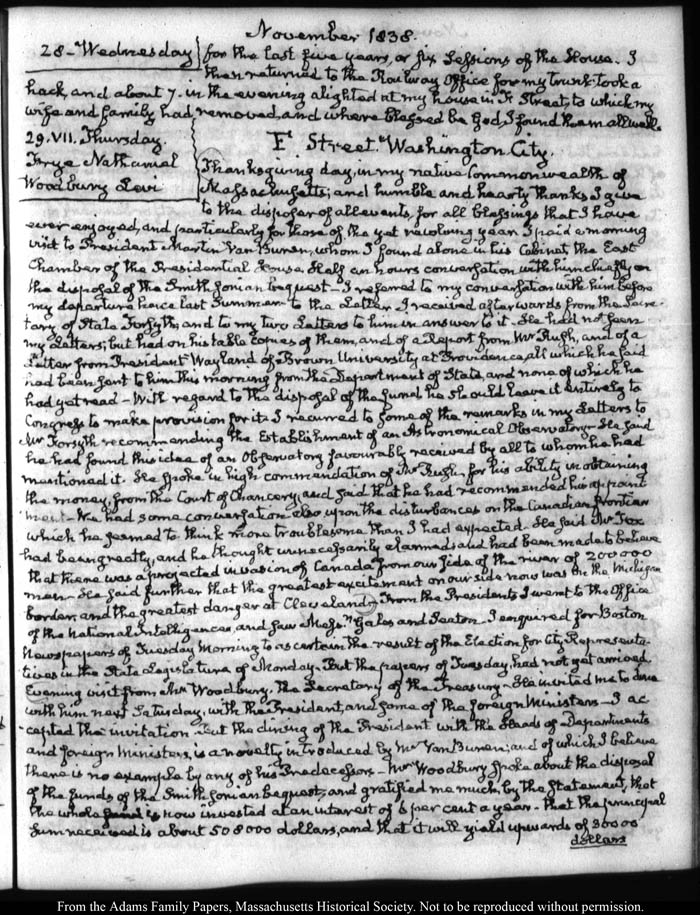 November 1838.
28 - Wednesday
for the last five years, or six Sessions of the House. I
then returned to the Railway Office for my trunk took a
hack, and about 7. in the evening alighted at my house in F. Street, to which my
wife and family had removed, and where blessed be God, I found them all well.
29. VII. Thursday
Frye Nathaniel
Woodbury Levi
F. Street Washington City.
Thanksgiving day, in my native Commonwealth of
Massachusetts; and humble and hearty thanks I give
to the disposer of all events, for all blessings that I have
ever enjoyed, and particularly for those of the yet revolving year. I paid a morning
visit to President Martin Van Buren, whom I found alone in his Cabinet, the East
Chamber of the Presidential House. Half an hours conversation with him chiefly on
the disposal of the Smithsonian bequest - I referred to my conversation with him before
my departure hence last Summer - to the Letter I received afterwards from the Secre-
tary of State Forsyth; and to my two Letters to him in answer to it. He had not seen
my Letters; but had on his table copies of them, and of a Report from Mr Rush, and of a
Letter from President Wayland of Brown University at Providence, all which he said
had been sent to him this morning from the Department of State, and none of which he
had yet read - With regard to the disposal of the fund he should leave it entirely to
Congress to make provision for it. I recurred to some of the remarks in my Letters to
Mr Forsyth recommending the Establishment of an Astronomical Observatory - He said
he had found this idea of an Observatory favourably received by all to whom he had
mentioned it. He spoke in high commendation of Mr Rush, for his ability in obtaining
the money, from the Court of Chancery, and said that he had recommended his appoint
ment - We had some conversation also upon the disturbances on the Canadian frontier
which he seemed to think more troublesome than I had expected - He said Mr Fox
had been greatly, and he thought unnecessarily alarmed; and had been made to believe
that there was a projected invasion of Canada from our side of the river of 200000
men - He said further that the greatest excitement on our side now was on the Michigan
border and the greatest danger at Cleveland - From the Presidents I went to the Office
of the National Intelligencer, and saw Messrs Gales and Seaton. I enquired for Boston
Newspapers of Tuesday Morning to ascertain the result of the Election for City Representa-
tives in the State Legislature of Monday - But the papers of Tuesday, had not yet arrived.
Evening visit from Mr Woodbury, the Secretary of the Treasury - He invited me to dine
with him next Saturday, with the President, and some of the foreign Ministers - I ac
cepted the invitation - But the dining of the President with the Heads of Departments
and foreign Ministers, is a novelty, introduced by Mr Van Buren; and of which I believe
there is no example by any of his Predecessors - Mr Woodbury spoke about the disposal
of the funds of the Smithsonian Bequest; and gratified me much, by the statement, that
the whole is now invested at an interest of 6 per cent a year - that the principal
sum received is about 508000 dollars, and that it will yield upwards of 30000
dollars
From the Adams Family Papers, Massachusetts Historical Society. Not to be reproduced without permission.